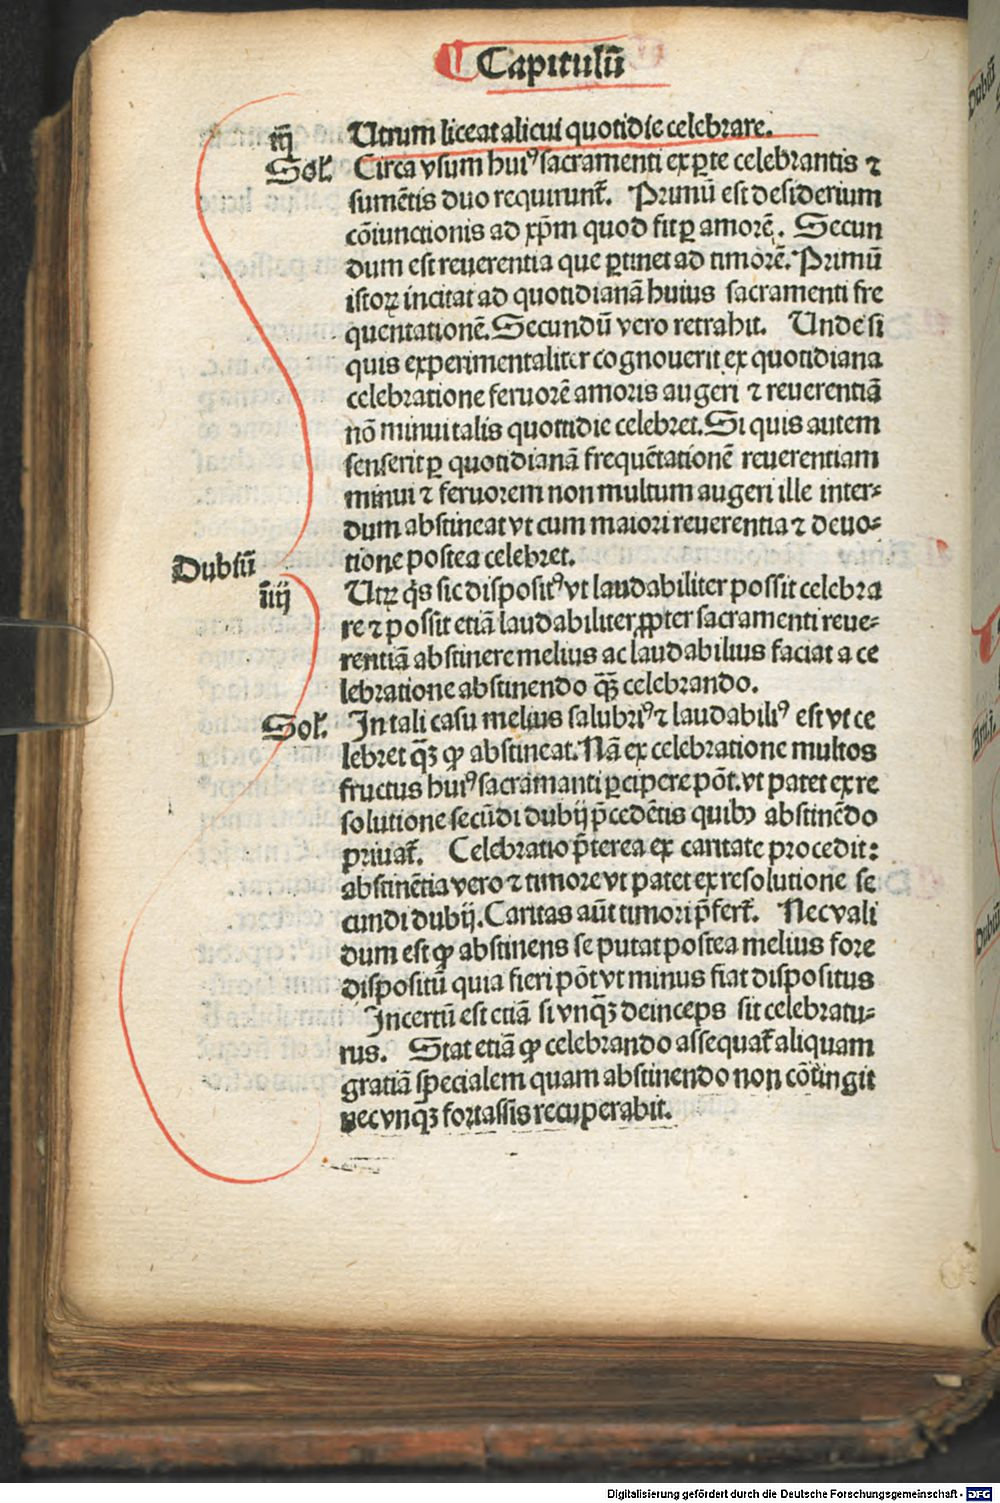 ¶ Capitulū
iij Utrum liceat alicui quotidie celebrare.
Sol. Circa vsum huiꝰ sacramenti ex ꝑte celebrantis ⁊
sumētis duo requirunt̄. Primū est desiderium
cōiunctionis ad xp̄m quod fit ꝑ amorē. Secun
dum est reuerentia que ꝑtinet ad timorē. Primū
istoꝝ incitat ad quotidianā huius sacramenti fre
quentationē. Secundū vero retrahit. Unde si
quis experimentaliter cognouerit ex quotidiana
celebratione feruorē amoris augeri ⁊ reuerentiā
nō minui talis quotidie celebret. Si quis autem
senserit ꝑ quotidianā frequētationē reuerentiam
minui ⁊ feruorem non multum augeri ille inter⸗
dum abstineat vt cum maiori reuerentia ⁊ deuo⸗
tione postea celebret.
Dubiū
iiij
Utꝝ q̇s sic dispositꝰ vt laudabiliter possit celebra
re ⁊ possit etiā laudabiliter ꝓpter sacramenti reue⸗
rentiā abstinere melius ac laudabilius faciat a ce
lebratione abstinendo qȝ̄ celebrando.
Sol. In tali casu melius salubriꝰ ⁊ laudabiliꝰ est vt ce
lebret qȝ̄ ꝙ abstineat. Nā ex celebratione multos
fructus huiꝰ sacramanti ꝑcipere pōt. vt patet ex re
solutione secūdi dubij p̄cedētis quibꝰ abstinēdo
priuat̄. Celebratio p̄terea ex caritate procedit:
abstinētia vero ⁊ timore vt patet ex resolutione se
cundi dubij. Caritas aūt timori p̄fert̄. Nec vali
dum est ꝙ abstinens se putat postea melius fore
dispositū quia fieri pōt vt minus fiat dispositus
Incertū est etiā si vnqȝ̄ deinceps sit celebratu⸗
rus. Stat etiā ꝙ celebrando assequat̄ aliquam
gratiā specialem quam abstinendo non cōtingit
nec vnqȝ̄ fortassis recuperabit.
Dubiū
Dubiū
Digitalisierung gefördert durch die Deutsche Forschungsgemeinschaft - DFG